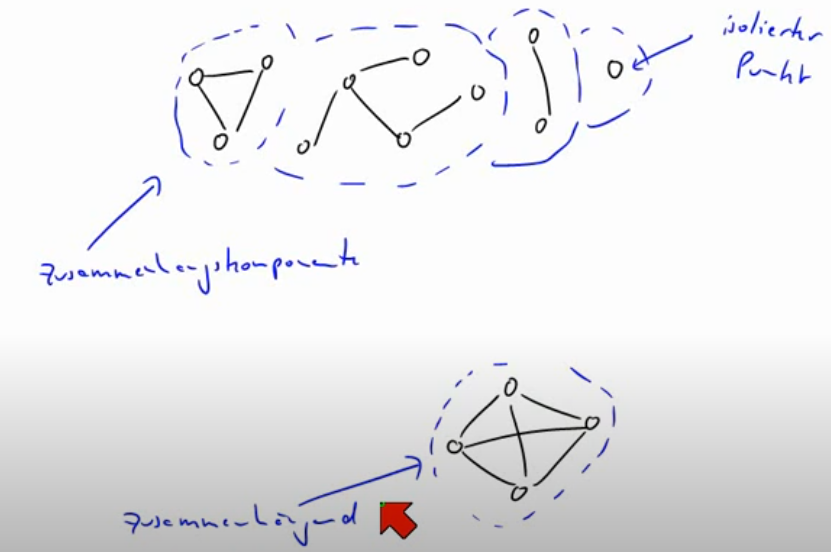 isolierter
Punkt
Zusammenhangskomponente
Zusammenhängend